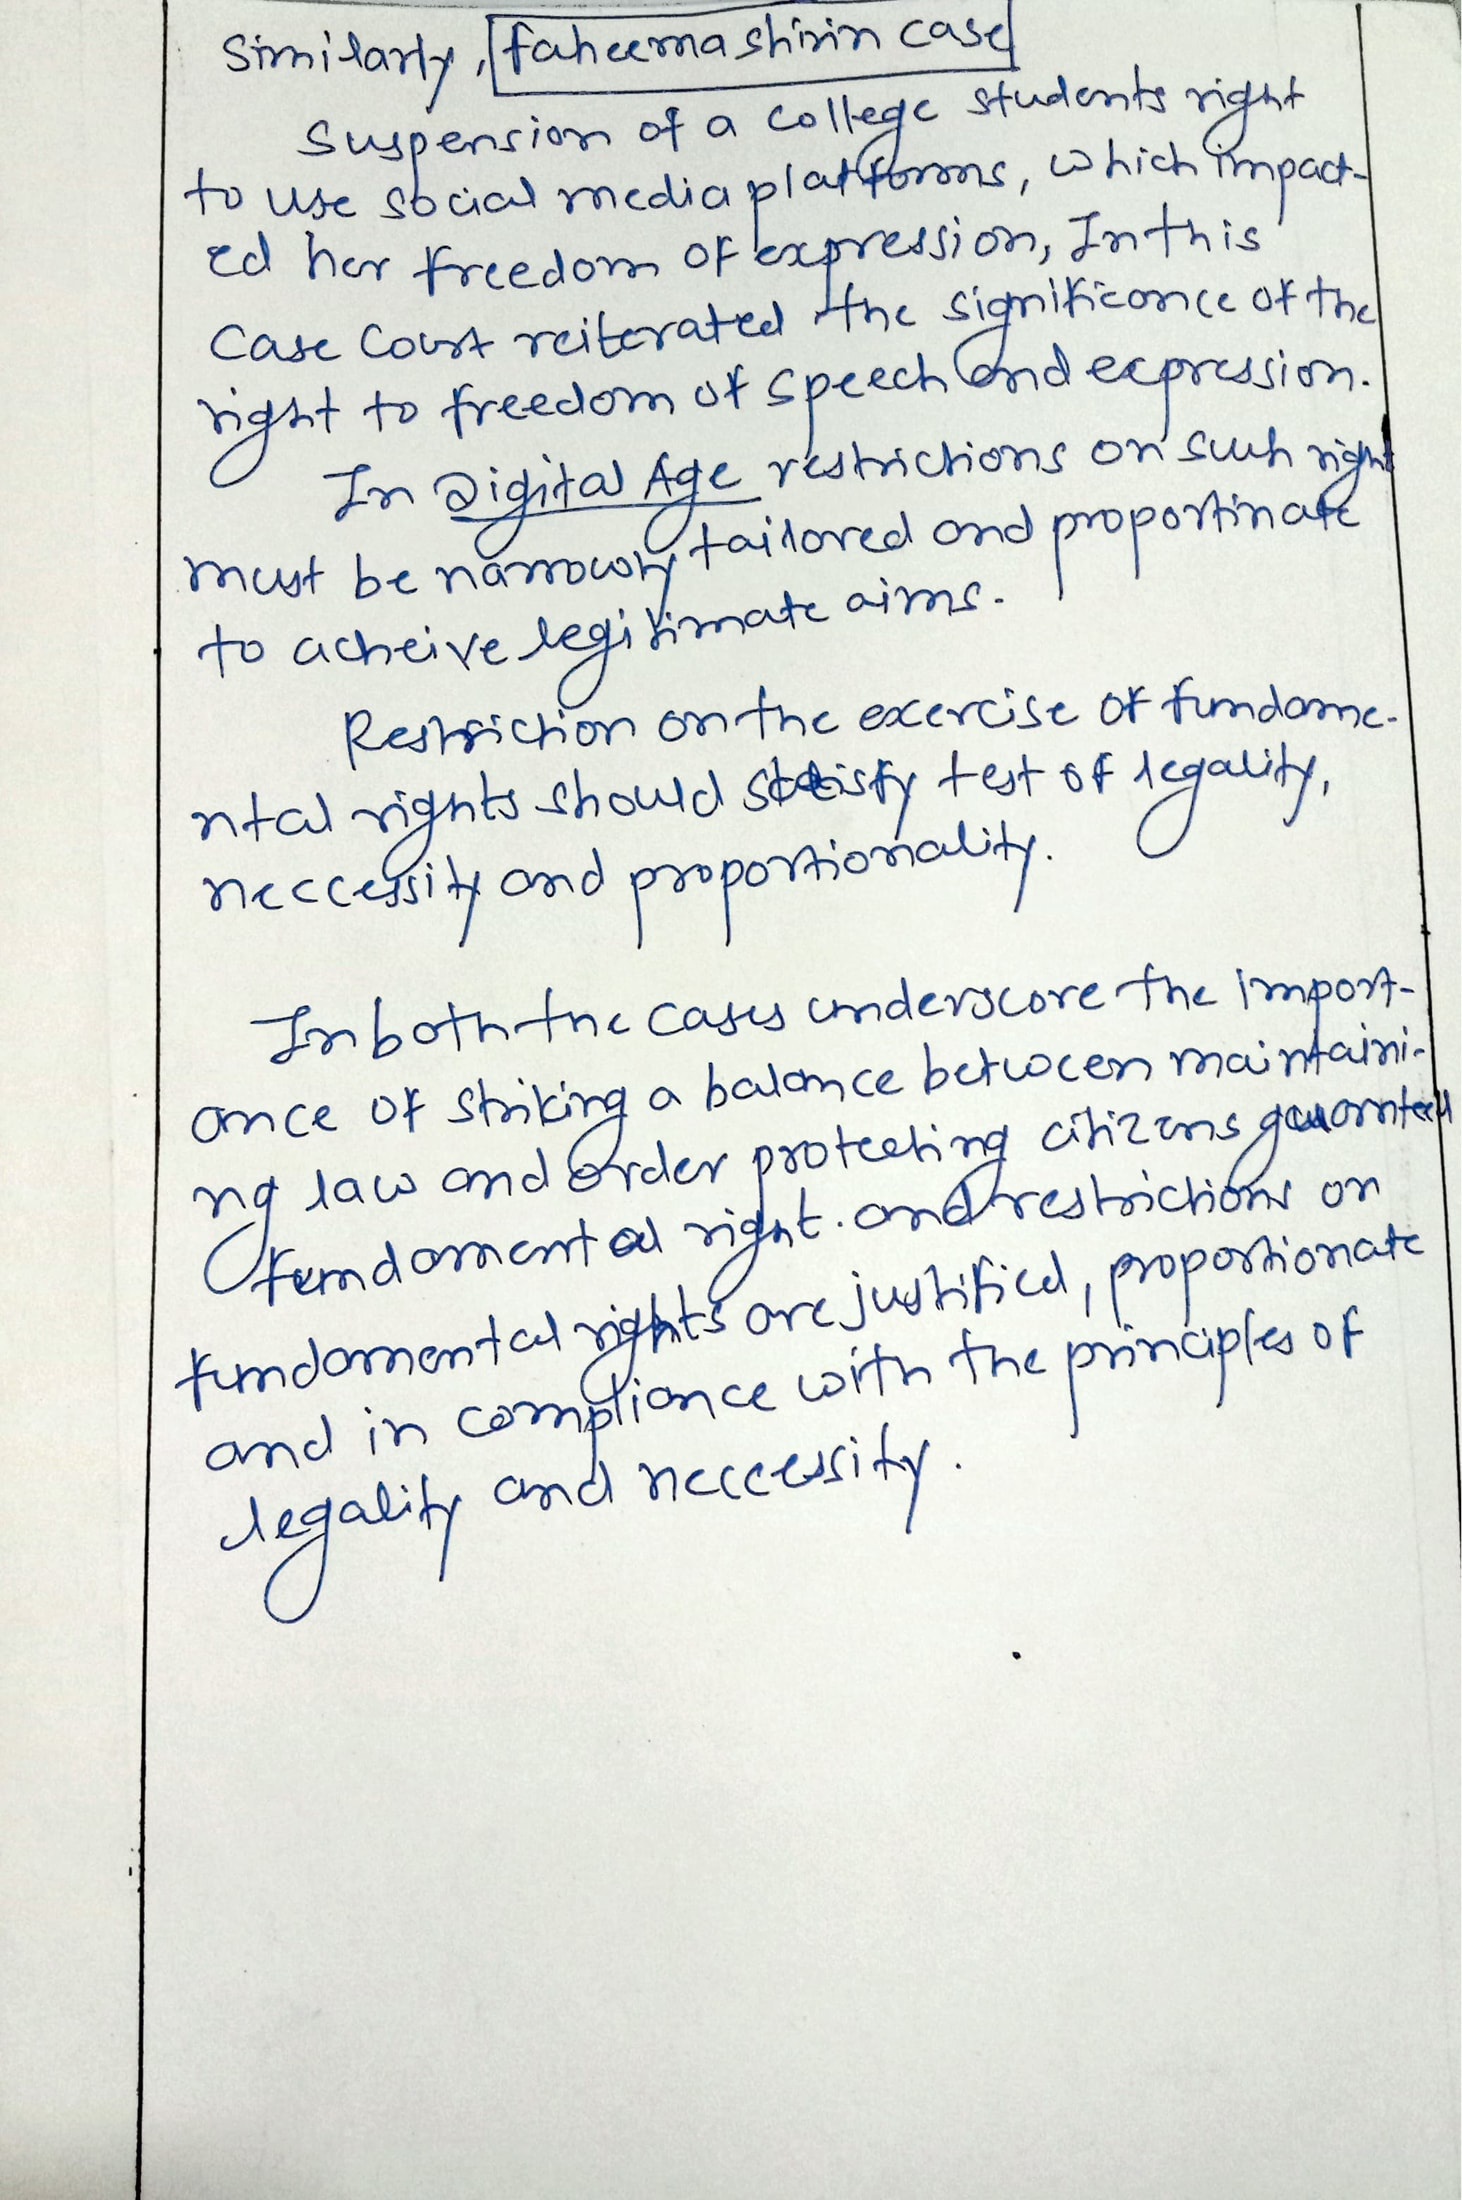 Similarly, faheema shirin case
Suspension of a college students right
to use social media platforms, which impact-
ed her freedom of expression, In this
case Court reiterated the significance of the
right to freedom of speech and expression.
In Digital Age restrictions on such right
must be narrowly tailored and proportinate
to acheive legitimate aims.
Restriction on the exercise of fundame-
ntal rights should satisfy test of legality,
neccessity and proportionality.
In both the cases underscore the import-
ance of striking a balance between maintaini-
ng law and order protecting citizens guaranteed
fundamental right. and restrictions on
fundamental rights are justified, proportionate
and in compliance with the principles of
legality and neccessity.